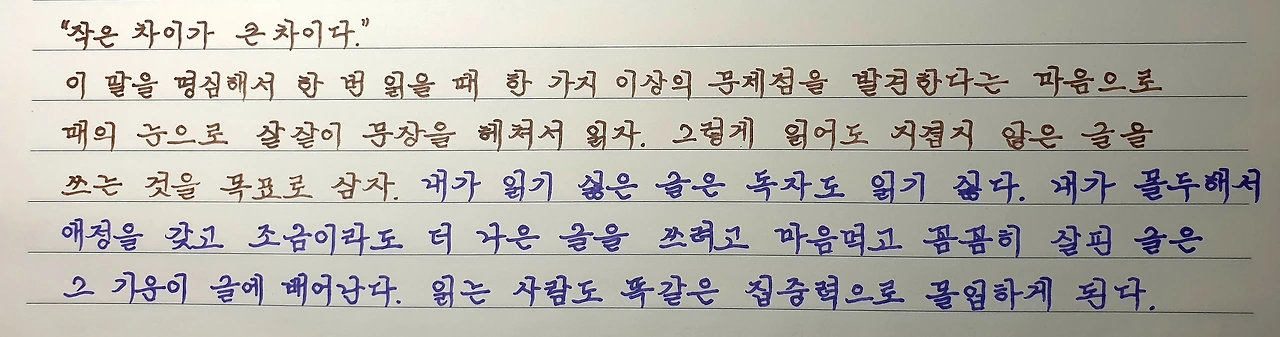 "작은 차이가 큰 차이다."
이 말을 명심해서 한 번 읽을 때 한 가지 이상의 문제점을 발견한다는 마음으로
매의 눈으로 샅샅이 문장을 헤쳐서 읽자. 그렇게 읽어도 지겹지 않은 글을
쓰는 것을 목표로 삼자. 내가 읽기 싫은 글은 독자도 읽기 싫다. 내가 몰두해서
애정을 갖고 조금이라도 더 나은 글을 쓰려고 마음먹고 꼼꼼히 살핀 글은
그 기운이 글에 배어난다. 읽는 사람도 똑같은 집중력으로 몰입하게 된다.